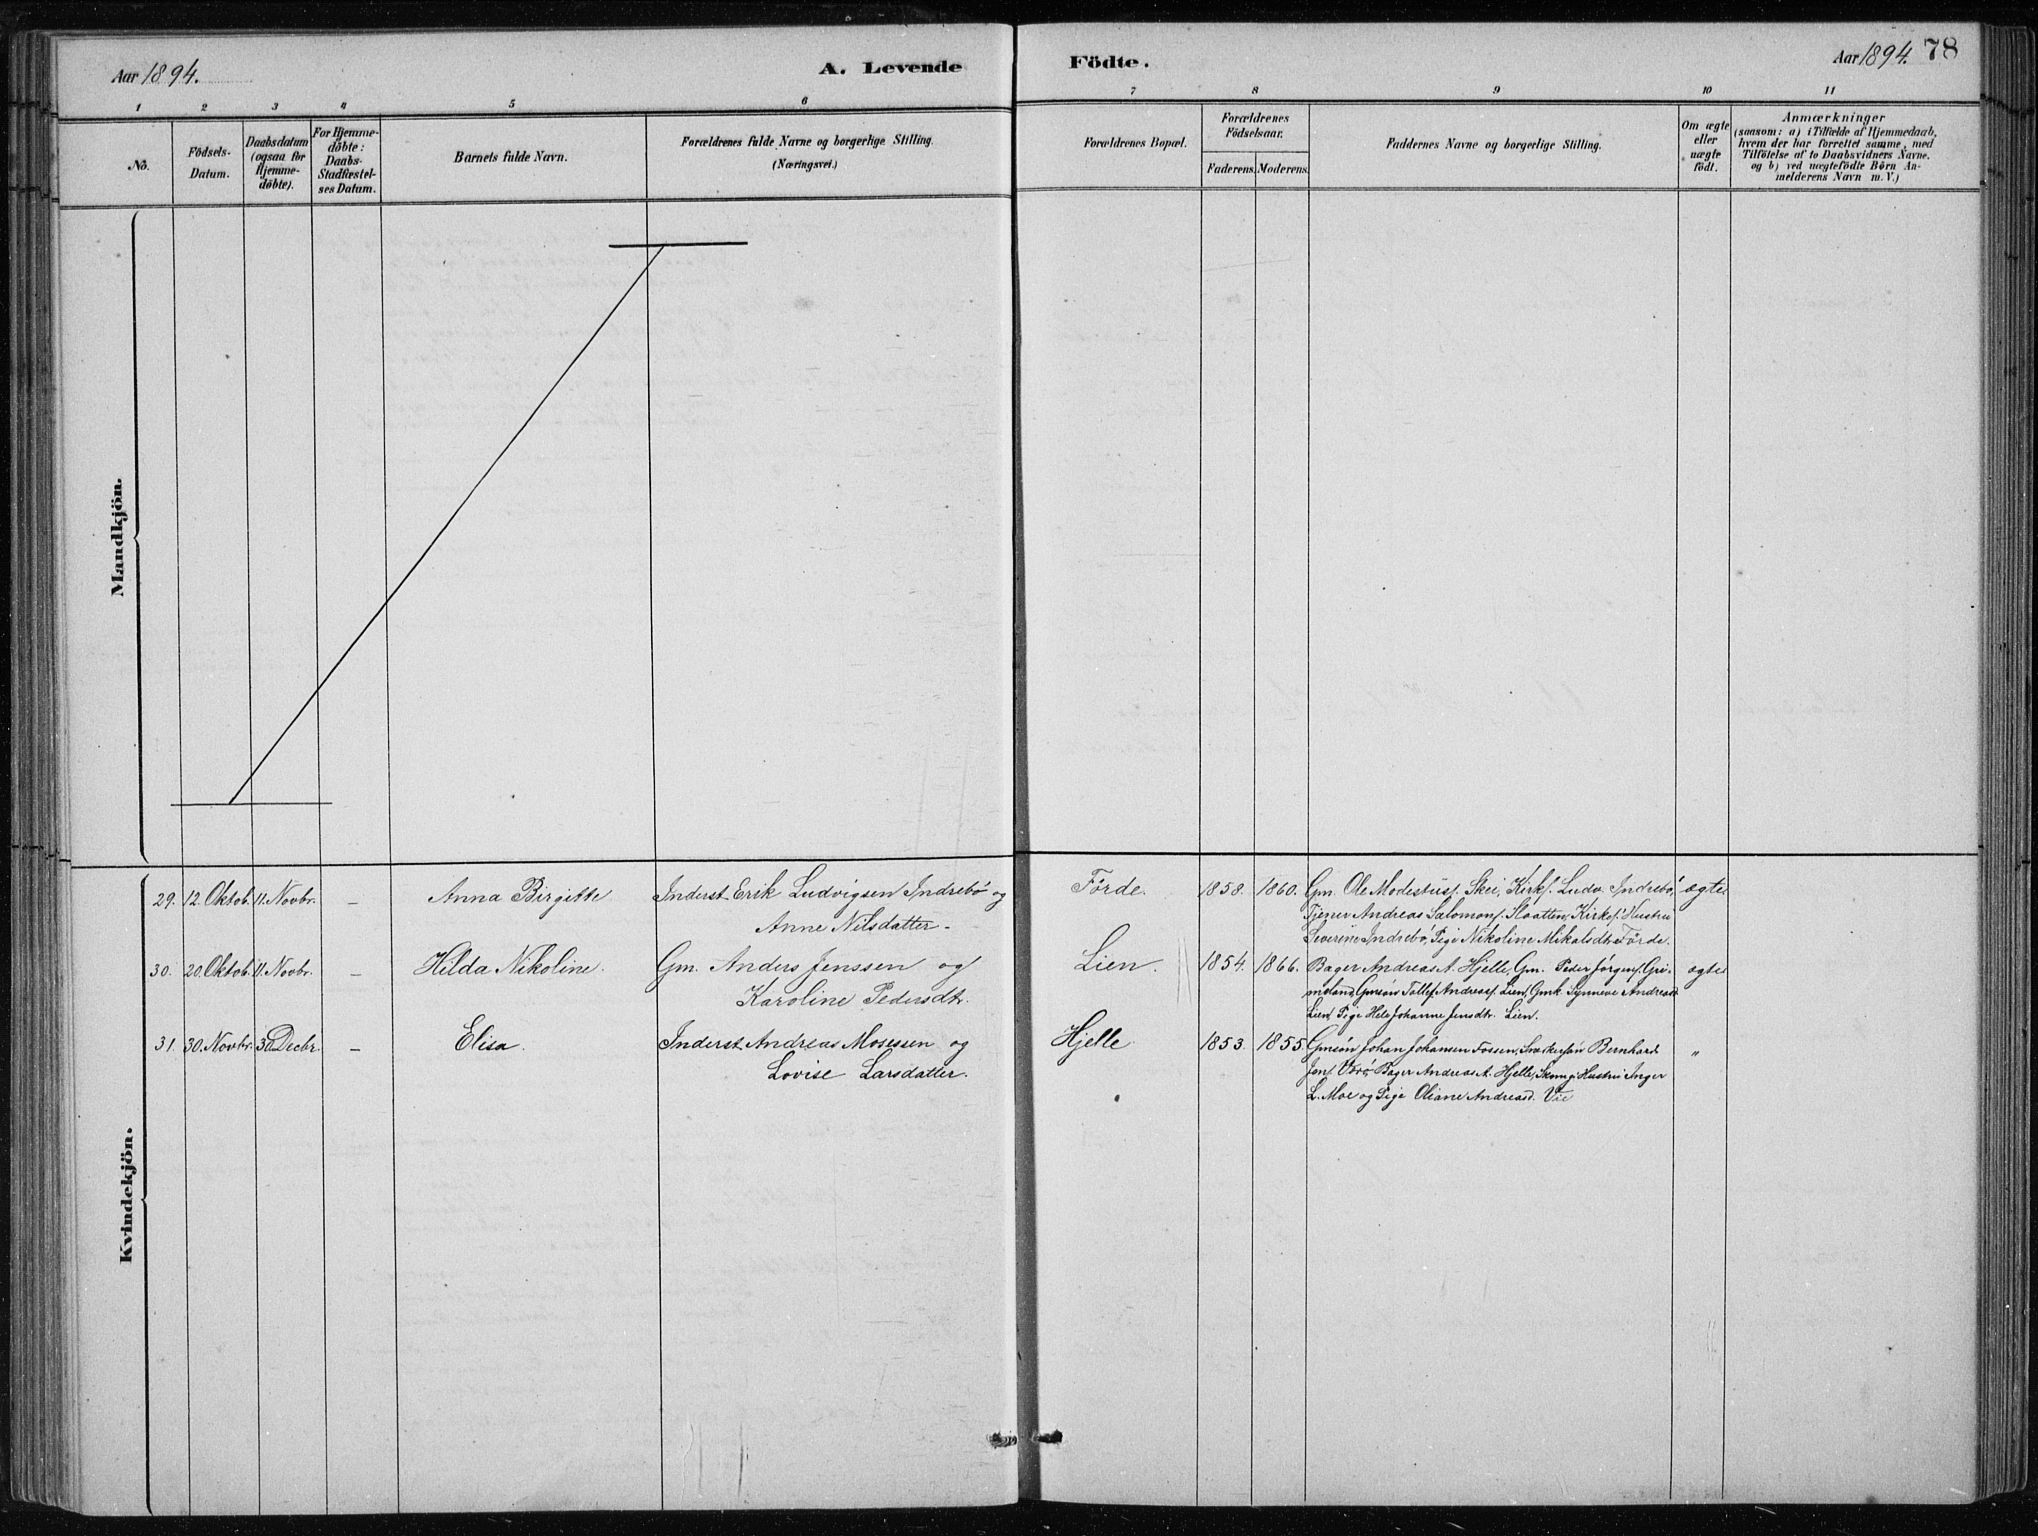 Aar 1894.
A. Levende
Födte.
Aar 1894. 78
1 2 3 4 5 6 7 8 9 10 11
No.
Födsels-
Datum.
Daabsdatum
(ogsaa for
Hjemme-
döbte).
For Hjemme-
döbte:
Daabs-
Stadfæstel-
ses Datum.
Barnets fulde Navn.
Forældrenes fulde Navne og borgerlige Stilling.
(Næringsvei.)
Forældrenes Bopæl.
Forældrenes
Födselsaar.
Faderens. Moderens.
Faddernes Navne og borgerlige Stilling.
Om ægte
eller
uægte
födt.
Anmærkninger
(saasom: a) i Tilfælde af Hjemmedaab,
hvem der har forrettet samme, med
Tilföielse af to Daabsvidners Navne.
og b) ved uægtefödte Börn An-
melderens Navn m. V.)
Mandkjön.
Kvindekjön.
29. 12. Oktob. 11. Novbr. – Anna Birgitte Inderst Erik Ludvigsen Indrebö og
Anne Nilsdatter.
Förde. 1858. 1860. Gm. Ole Modestusf. Skei, Kirkf. Ludv. Indrebö, ægte
Tjener Andreas Salomonf. Slaatten, Kirkef. Hustru
Severine Indrebö, Pige Nikoline Mikalsdtr Förde.
30. 20. Oktob. 11. Novbr. – Hilda Nikoline. Gm. Anders Jenssen og
Karoline Pedersdtr.
Lien. 1854. 1866. Bager Andreas A. Hjelle, Gm. Peder Jörgenf. Gri-
meland, Gmsön Tollef Andreasf. Lien, Gmk Synneve Andreasdr
Lien, Pige Johanne Jensdtr. Lien.
ægte
31. 30. Novbr. 30. Decbr. – Elisa. Inderst Andreas Mosessen og
Lovise Larsdatter.
Hjelle 1853. 1855. Gmsön Johan Johansen Fossen, Bernhard
Jenf. Bager Andreas A. Hjelle, Hustru Inger
L. Moe og Pige Oliane Andreasd. Vie
"